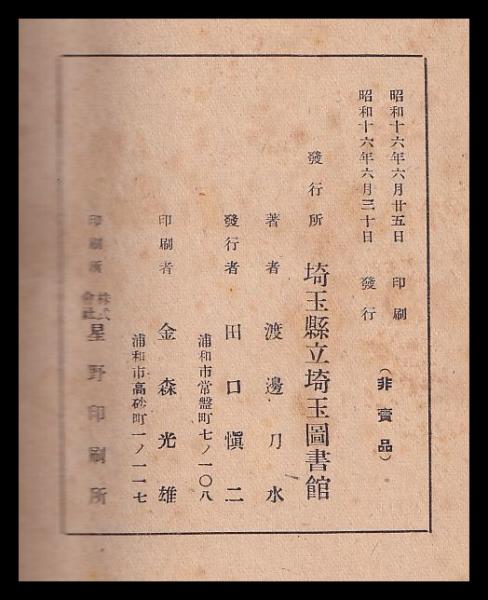 昭和十六年六月廿五日 印刷
昭和十六年六月三十日 發行
（非賣品）
發行所 埼玉縣立埼玉圖書館
著者 渡邊刀水
發行者 田口愼二
浦和市常盤町七ノ一〇八
印刷者 金森光雄
浦和市高砂町一ノ一一七
印刷所 株式會社 星野印刷所